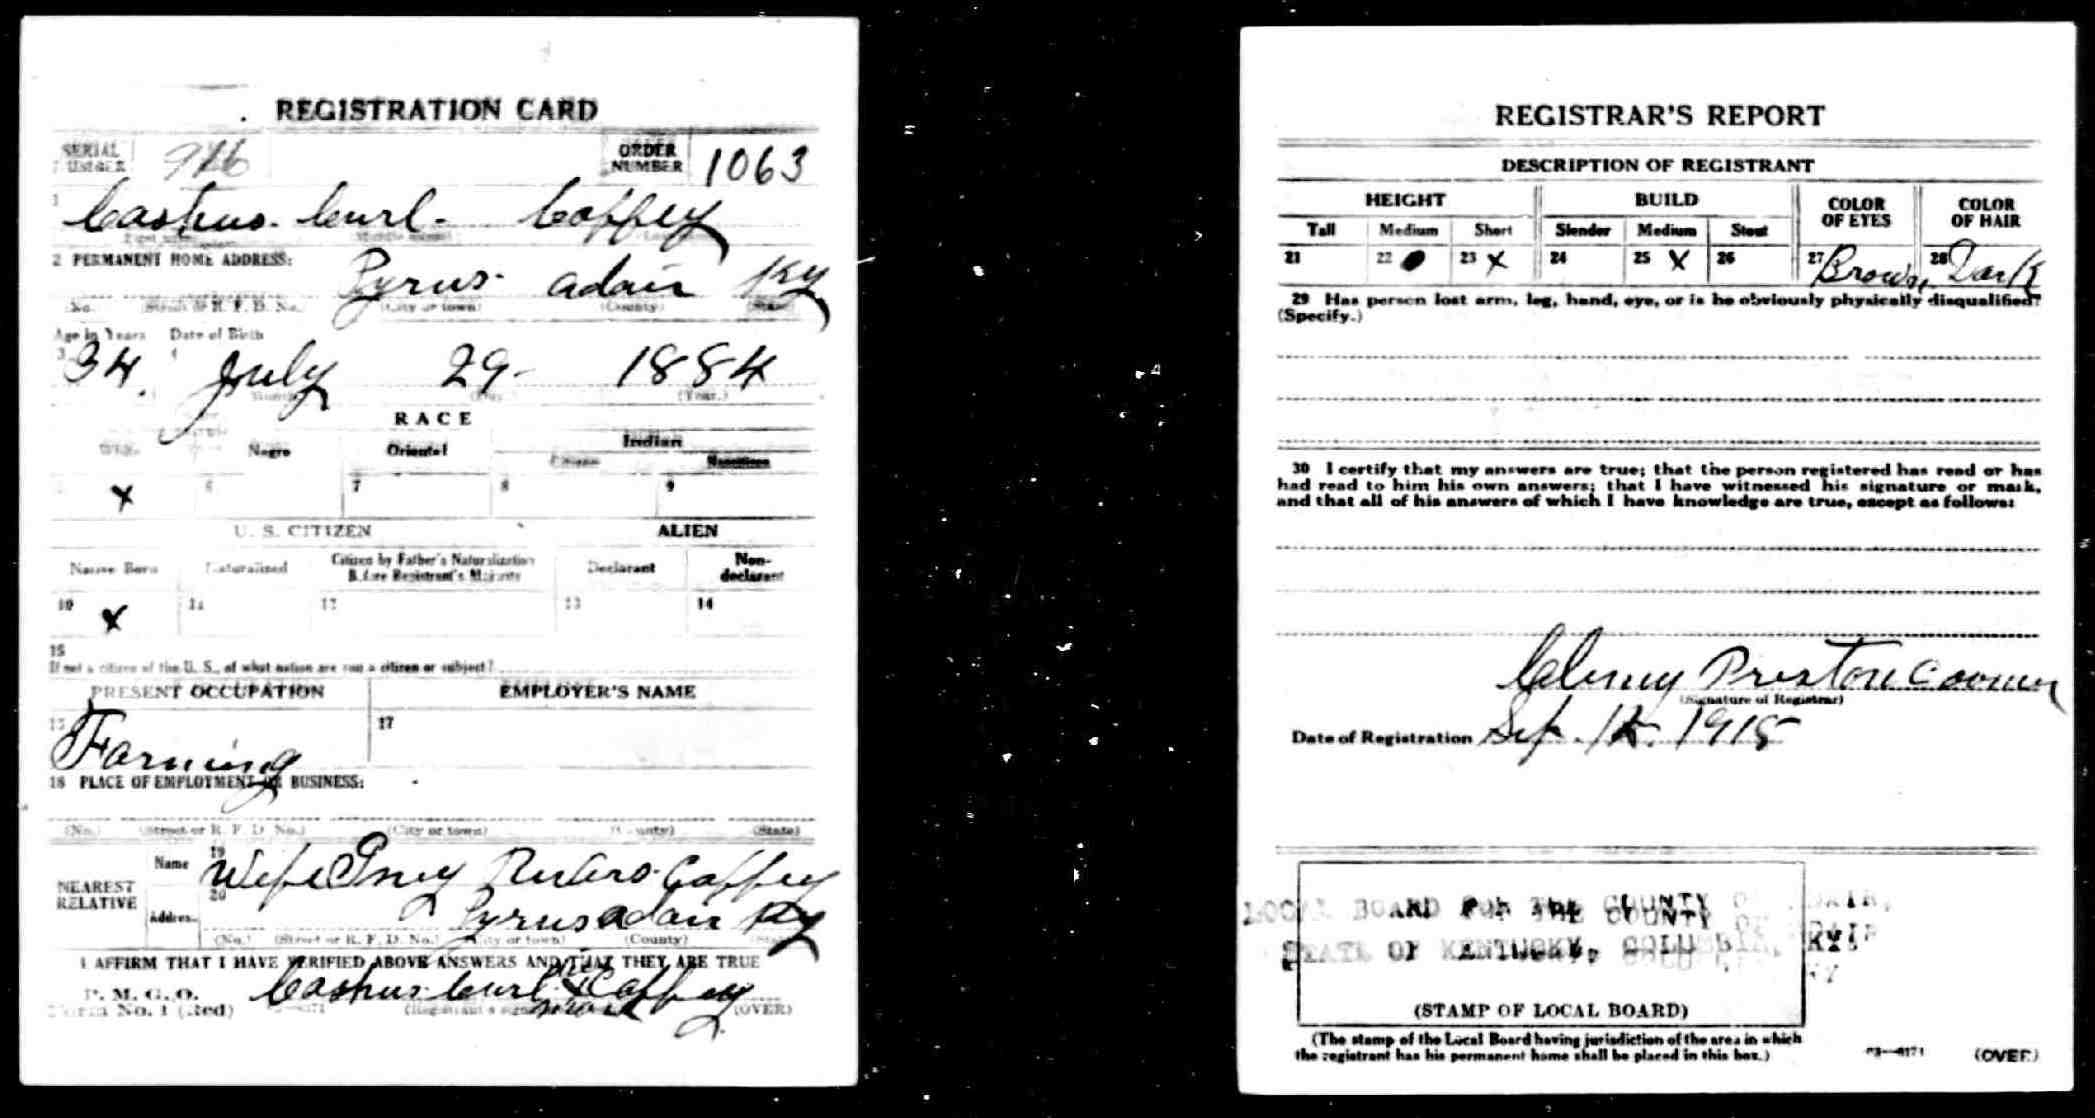 REGISTRATION CARD
SERIAL NUMBER
ORDER NUMBER 1063
1 Cashus Curl Coffey
2 PERMANENT HOME ADDRESS:
Pyrus Adair Ky
(No.) (Street or R. F. D. No.) (City or town) (County) (State)
Age in Years Date of Birth
3 34. 4 July 29- 1884
(Month.) (Day.) (Year.)
RACE
White Negro Oriental Indian
Citizen Noncitizen
X 6 7 8 9
U. S. CITIZEN ALIEN
Native Born Naturalized Citizen by Father's Naturalization Before Registrant's Majority Declarant Non-declarant
10 X 11 12 13 14
15
If not a citizen of the U. S., of what nation are you a citizen or subject?
PRESENT OCCUPATION EMPLOYER'S NAME
Farming 17
18 PLACE OF EMPLOYMENT OR BUSINESS:
(No.) (Street or R. F. D. No.) (City or town) (County) (State)
NEAREST RELATIVE
Name 19 Wife Coffey
Address 20 Pyrus Adair Ky
(No.) (Street or R. F. D. No.) (City or town) (County) (State)
I AFFIRM THAT I HAVE VERIFIED ABOVE ANSWERS AND THAT THEY ARE TRUE
P. M. G. O.
Form No. 1 (Red) Cashus Curl Coffey
his mark
(Registrant's signature or mark) (OVER)
REGISTRAR'S REPORT
DESCRIPTION OF REGISTRANT
HEIGHT BUILD COLOR OF EYES COLOR OF HAIR
Tall Medium Short Slender Medium Stout
21 22 23 X 24 25 X 26 27 Brown 28 Dark
29 Has person lost arm, leg, hand, eye, or is he obviously physically disqualified?
(Specify.)
30 I certify that my answers are true; that the person registered has read or has
had read to him his own answers; that I have witnessed his signature or mark,
and that all of his answers of which I have knowledge are true, except as follows:
Preston
(Signature of Registrar)
Date of Registration Sep. 12. 1918
LOCAL BOARD FOR THE COUNTY OF ADAIR,
STATE OF KENTUCKY, COLUMBIA, KY.
(STAMP OF LOCAL BOARD)
(The stamp of the Local Board having jurisdiction of the area in which
the registrant has his permanent home shall be placed in this box.)
03—6171 (OVER)